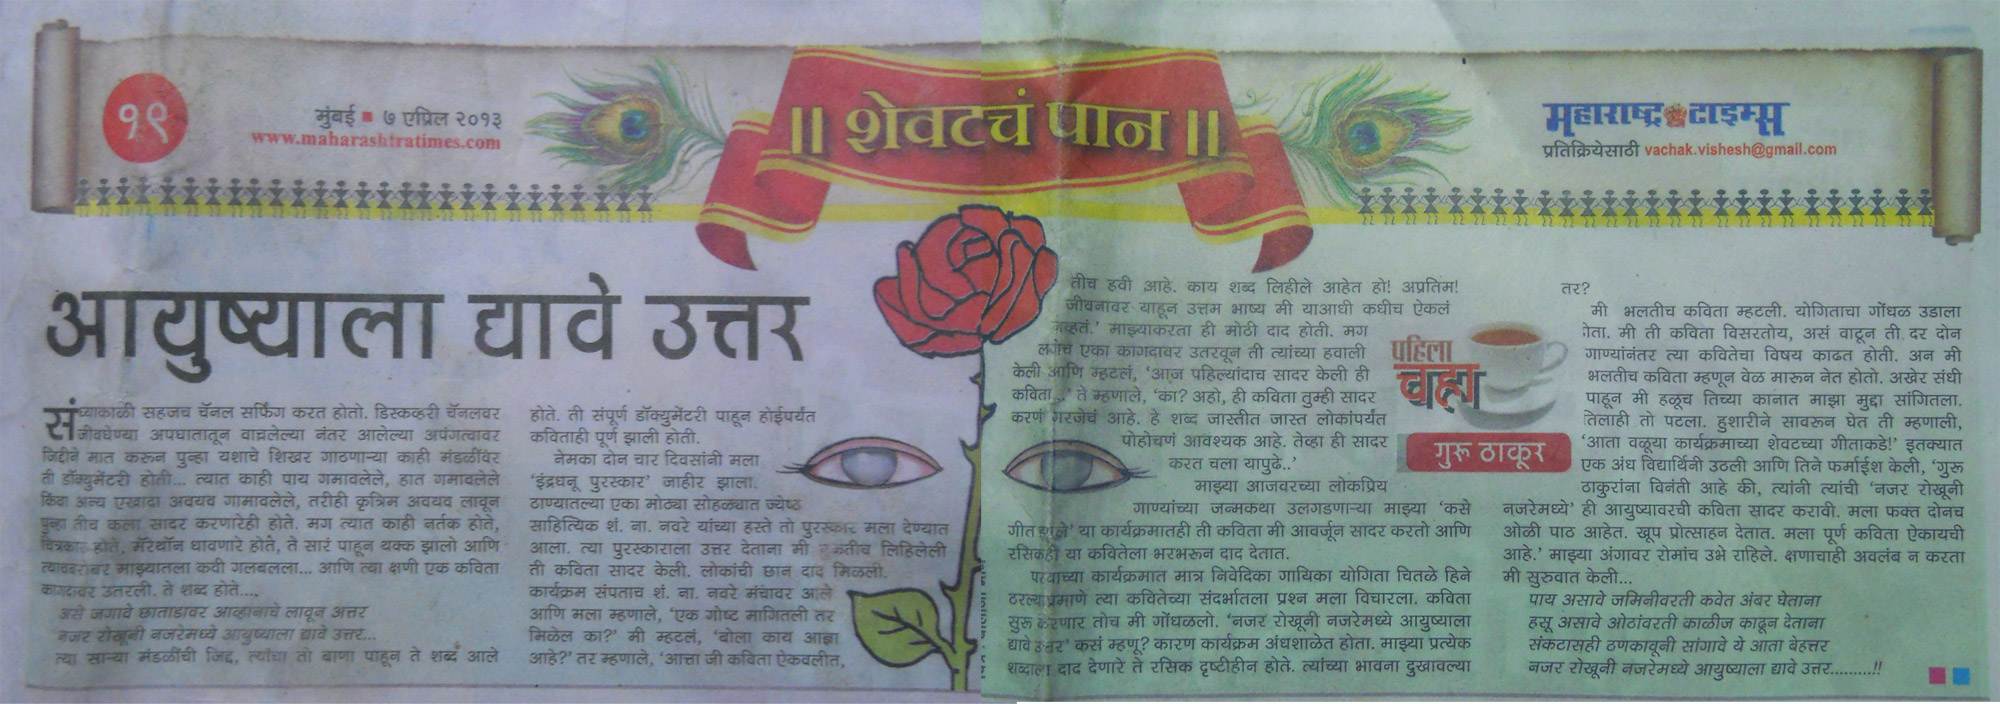 १९
मुंबई ७ एप्रिल २०१३
www.maharashtratimes.com
॥ शेवटचं पान ॥
महाराष्ट्र टाइम्स
प्रतिक्रियेसाठी vachak.vishesh@gmail.com
आयुष्याला द्यावे उत्तर
संध्याकाळी सहजच चॅनल सर्फिंग करत होतो. डिस्कव्हरी चॅनलवर
जीवघेण्या अपघातातून वाचलेल्या नंतर आलेल्या अपंगत्वावर
जिद्दीने मात करून पुन्हा यशाचे शिखर गाठणाऱ्या काही मंडळींवर
ती डॉक्युमेंटरी होती... त्यात काही पाय गमावलेले, हात गमावलेले
किंवा अन्य एखादा अवयव गामावलेले, तरीही कृत्रिम अवयव लावून
पुन्हा तीच कला सादर करणारेही होते. मग त्यात काही नर्तक होते,
चित्रकार होते, मॅरेथॉन धावणारे होते, ते सारं पाहून थक्क झालो आणि
त्याबरोबर माझ्यातला कवी गलबलला... आणि त्या क्षणी एक कविता
कागदावर उतरली. ते शब्द होते....
असे जगावे छाताडावर आव्हानाचे लावून अत्तर
नजर रोखूनी नजरेमध्ये आयुष्याला द्यावे उत्तर...
त्या साऱ्या मंडळींची जिद्द, त्यांचा तो बाणा पाहून ते शब्द आले
होते. ती संपूर्ण डॉक्युमेंटरी पाहून होईपर्यंत
कविताही पूर्ण झाली होती.
नेमका दोन चार दिवसांनी मला
'इंद्रधनू पुरस्कार' जाहीर झाला.
ठाण्यातल्या एका मोठ्या सोहळ्यात ज्येष्ठ
साहित्यिक शं. ना. नवरे यांच्या हस्ते तो पुरस्कार मला देण्यात
आला. त्या पुरस्काराला उत्तर देताना मी नुकतीच लिहिलेली
ती कविता सादर केली. लोकांची छान दाद मिळली.
कार्यक्रम संपताच शं. ना. नवरे मंचावर आले
आणि मला म्हणाले, 'एक गोष्ट मागितली तर
मिळेल का?' मी म्हटलं, 'बोला काय आज्ञा
आहे?' तर म्हणाले, 'आत्ता जी कविता ऐकवलीत,
तीच हवी आहे. काय शब्द लिहीले आहेत हो! अप्रतिम!
जीवनावर याहून उत्तम भाष्य मी याआधी कधीच ऐकलं
नव्हतं.' माझ्याकरता ही मोठी दाद होती. मग
लगेच एका कागदावर उतरवून ती त्यांच्या हवाली
केली आणि म्हटलं, 'आज पहिल्यांदाच सादर केली ही
कविता...' ते म्हणाले, 'का? अहो, ही कविता तुम्ही सादर
करणं गरजेचं आहे. हे शब्द जास्तीत जास्त लोकांपर्यंत
पोहोचणं आवश्यक आहे. तेव्हा ही सादर
करत चला यापुढे..'
माझ्या आजवरच्या लोकप्रिय
गाण्यांच्या जन्मकथा उलगडणाऱ्या माझ्या 'कसे
गीत झाले' या कार्यक्रमातही ती कविता मी आवर्जून सादर करतो आणि
रसिकही या कवितेला भरभरून दाद देतात.
परवाच्या कार्यक्रमात मात्र निवेदिका गायिका योगिता चितळे हिने
ठरल्याप्रमाणे त्या कवितेच्या संदर्भातला प्रश्न मला विचारला. कविता
सुरू करणार तोच मी गोंधळलो. 'नजर रोखूनी नजरेमध्ये आयुष्याला
द्यावे उत्तर' कसं म्हणू? कारण कार्यक्रम अंधशाळेत होता. माझ्या प्रत्येक
शब्दाला दाद देणारे ते रसिक दृष्टीहीन होते. त्यांच्या भावना दुखावल्या
पहिला
चहा
गुरू ठाकूर
तर?
मी भलतीच कविता म्हटली. योगिताचा गोंधळ उडाला
होता. मी ती कविता विसरतोय, असं वाटून ती दर दोन
गाण्यांनंतर त्या कवितेचा विषय काढत होती. अन मी
भलतीच कविता म्हणून वेळ मारून नेत होतो. अखेर संधी
पाहून मी हळूच तिच्या कानात माझा मुद्दा सांगितला.
तिलाही तो पटला. हुशारीने सावरून घेत ती म्हणाली,
'आता वळूया कार्यक्रमाच्या शेवटच्या गीताकडे!' इतक्यात
एक अंध विद्यार्थिनी उठली आणि तिने फर्माईश केली, 'गुरू
ठाकुरांना विनंती आहे की, त्यांनी त्यांची 'नजर रोखूनी
नजरेमध्ये' ही आयुष्यावरची कविता सादर करावी. मला फक्त दोनच
ओळी पाठ आहेत. खूप प्रोत्साहन देतात. मला पूर्ण कविता ऐकायची
आहे.' माझ्या अंगावर रोमांच उभे राहिले. क्षणाचाही अवलंब न करता
मी सुरुवात केली...
पाय असावे जमिनीवरती कवेत अंबर घेताना
हसू असावे ओठांवरती काळीज काढून देताना
संकटासही ठणकावूनी सांगावे ये आता बेहत्तर
नजर रोखूनी नजरेमध्ये आयुष्याला द्यावे उत्तर..........!!